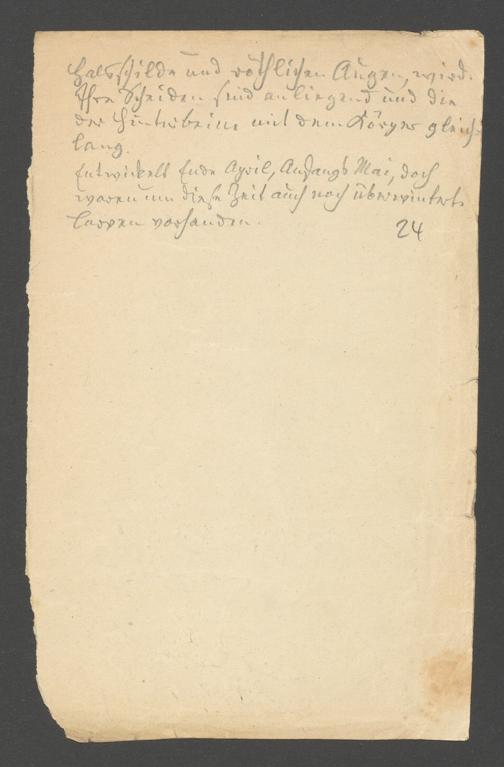 Halsschilde und röthlichen Augen, wird.
Ihre Scheiden sind anliegend und die
der Hinterbeine mit dem Körper gleich-
lang.
Entwickelt Ende April, Anfangs Mai, doch
waren um diese Zeit auch noch überwinterte
Larven vorhanden.
24